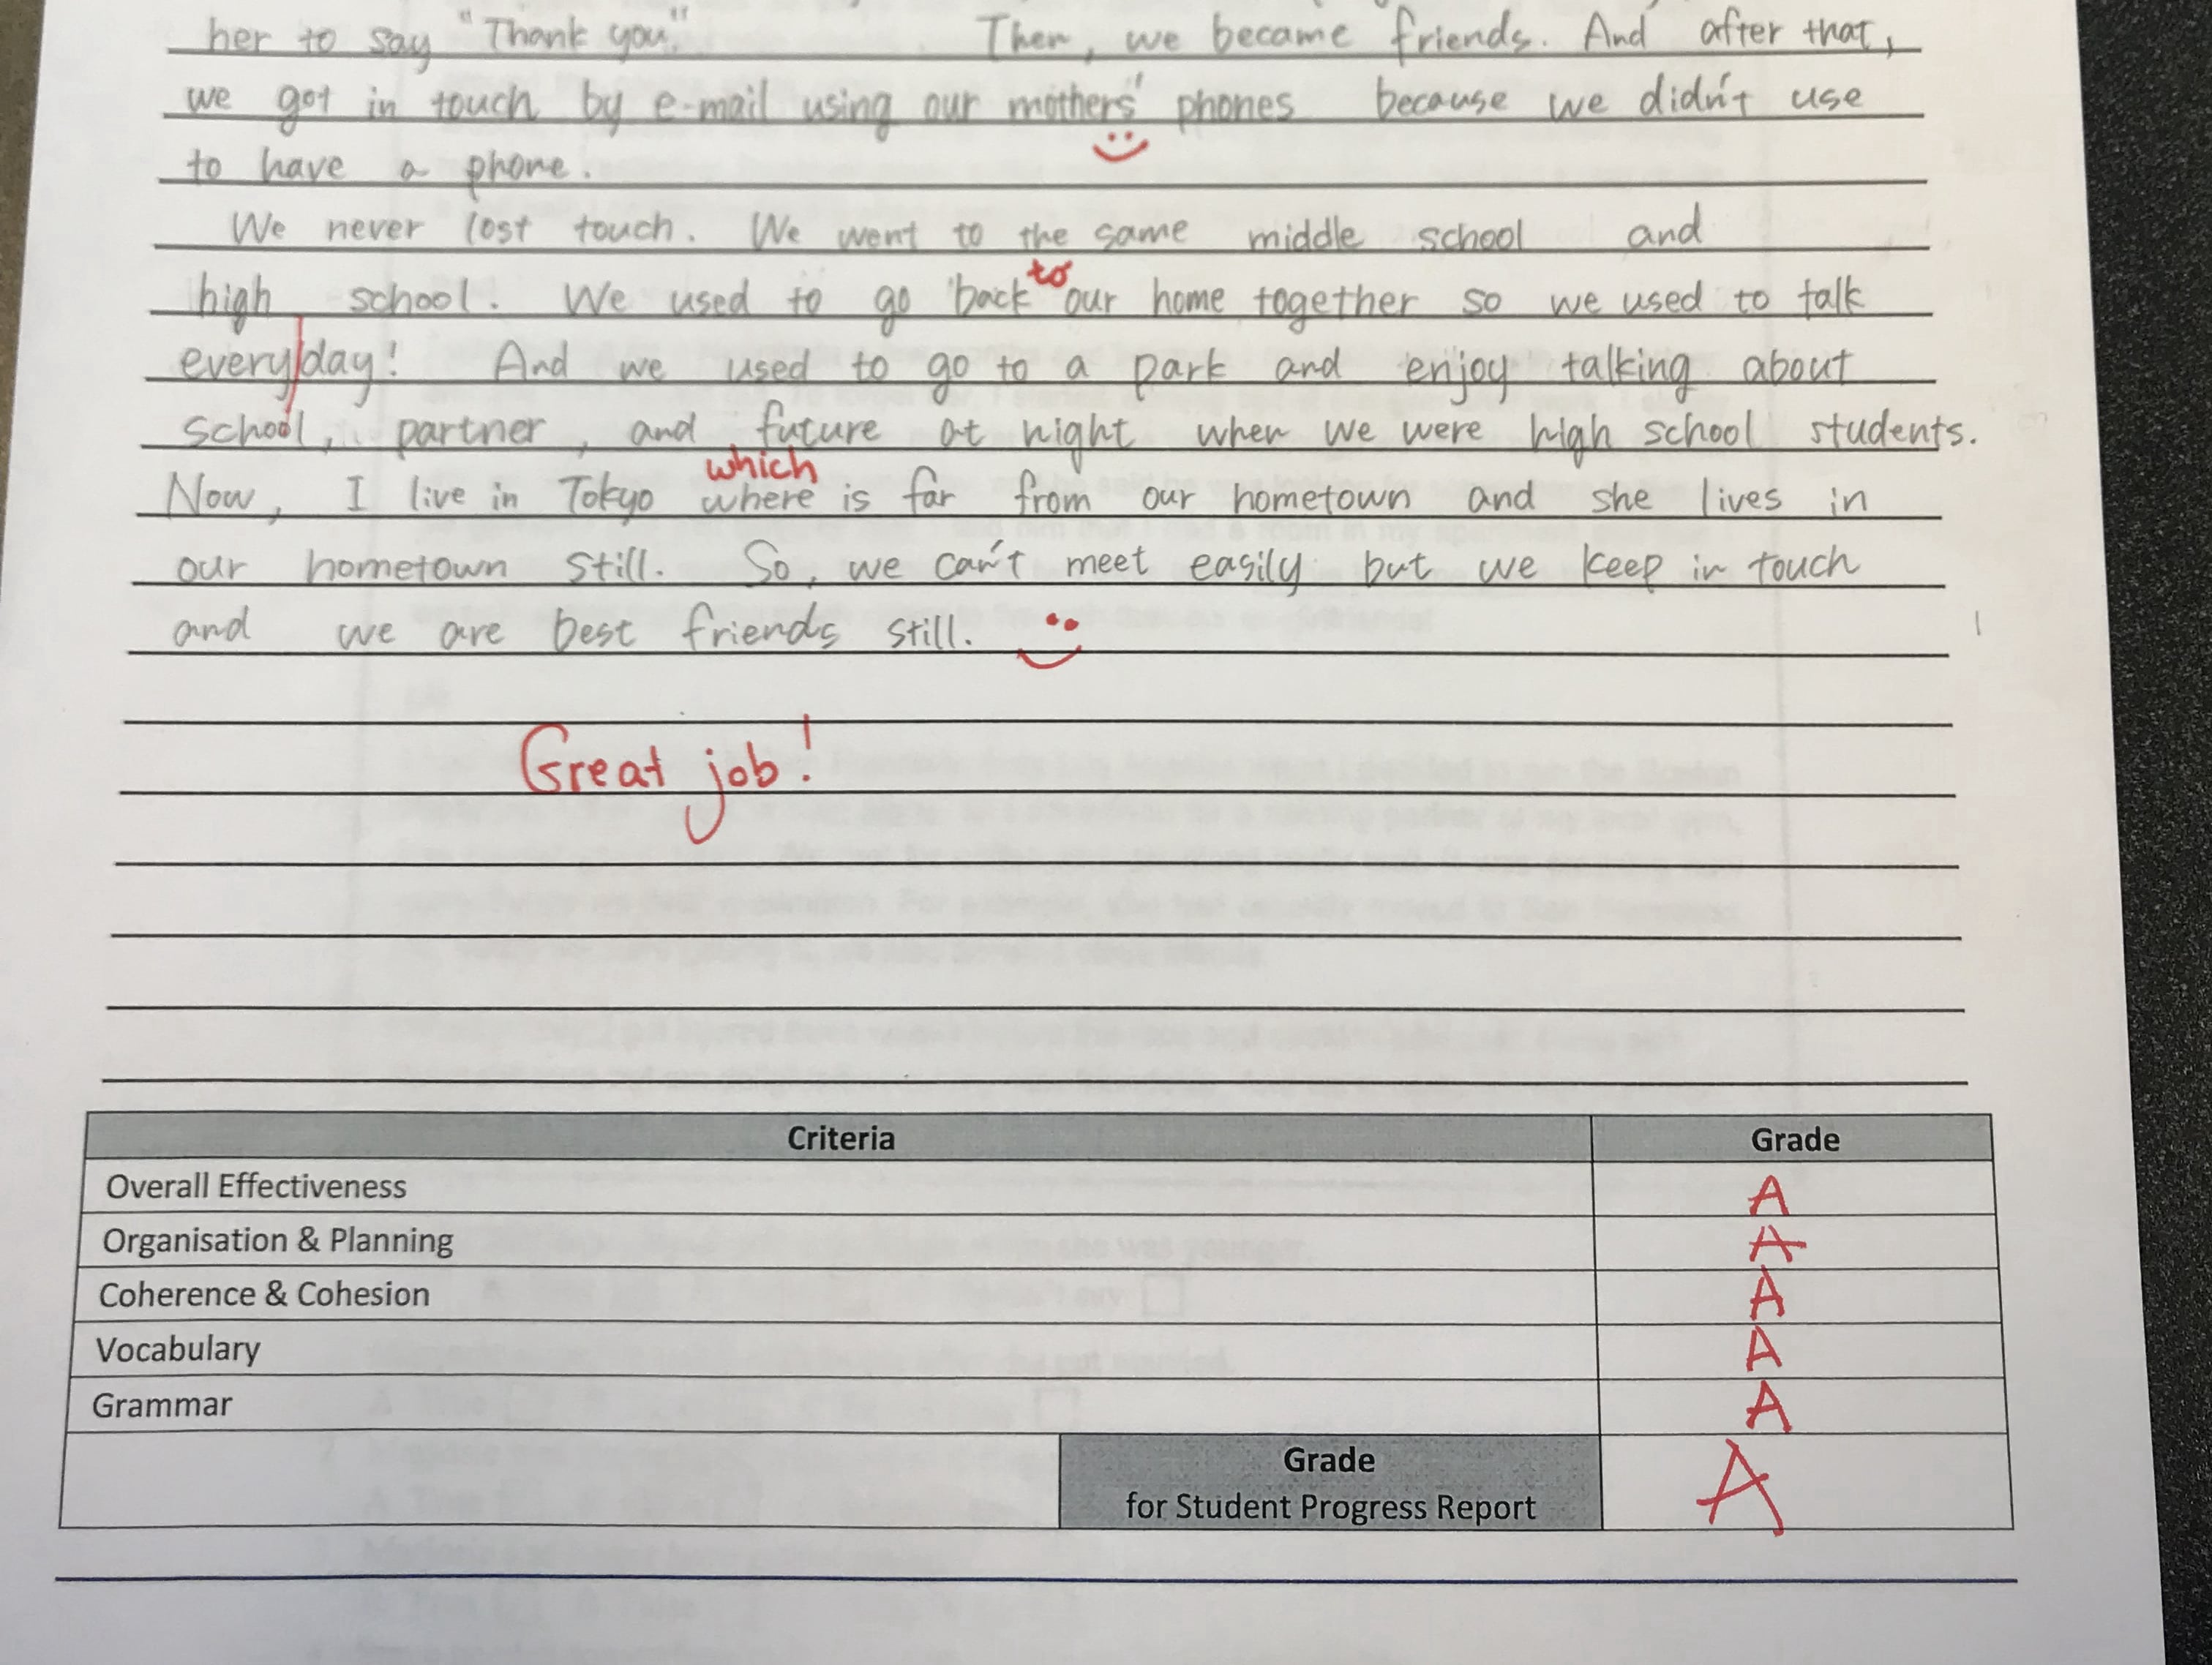 her to say "Thank you."  Then, we became friends. And after that,
we got in touch by e-mail using our mothers' phones because we didn't use
to have a phone.
We never lost touch. We went to the same middle school and
to
high school. We used to go back our home together so we used to talk
everyday! And we used to go to a park and enjoy talking about
school, partner, and future at night when we were high school students.
which
Now, I live in Tokyo where is far from our hometown and she lives in
our hometown still. So, we can't meet easily but we keep in touch
and we are best friends still.
Great job!
Criteria Grade
Overall Effectiveness A
Organisation & Planning A
Coherence & Cohesion A
Vocabulary A
Grammar A
Grade
for Student Progress Report A